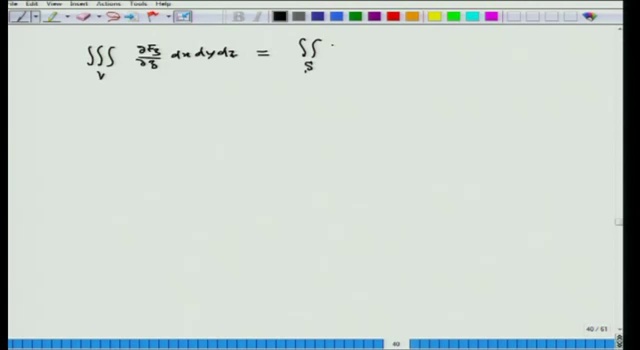 File Edit View Insert Actions Tools Help
∫∫∫_V ∂F₃/∂z dx dy dz = ∫∫_S
40 / 61
40